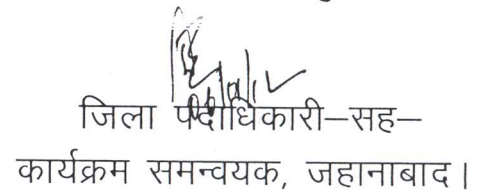 जिला पदाधिकारी–सह–
कार्यक्रम समन्वयक, जहानाबाद।